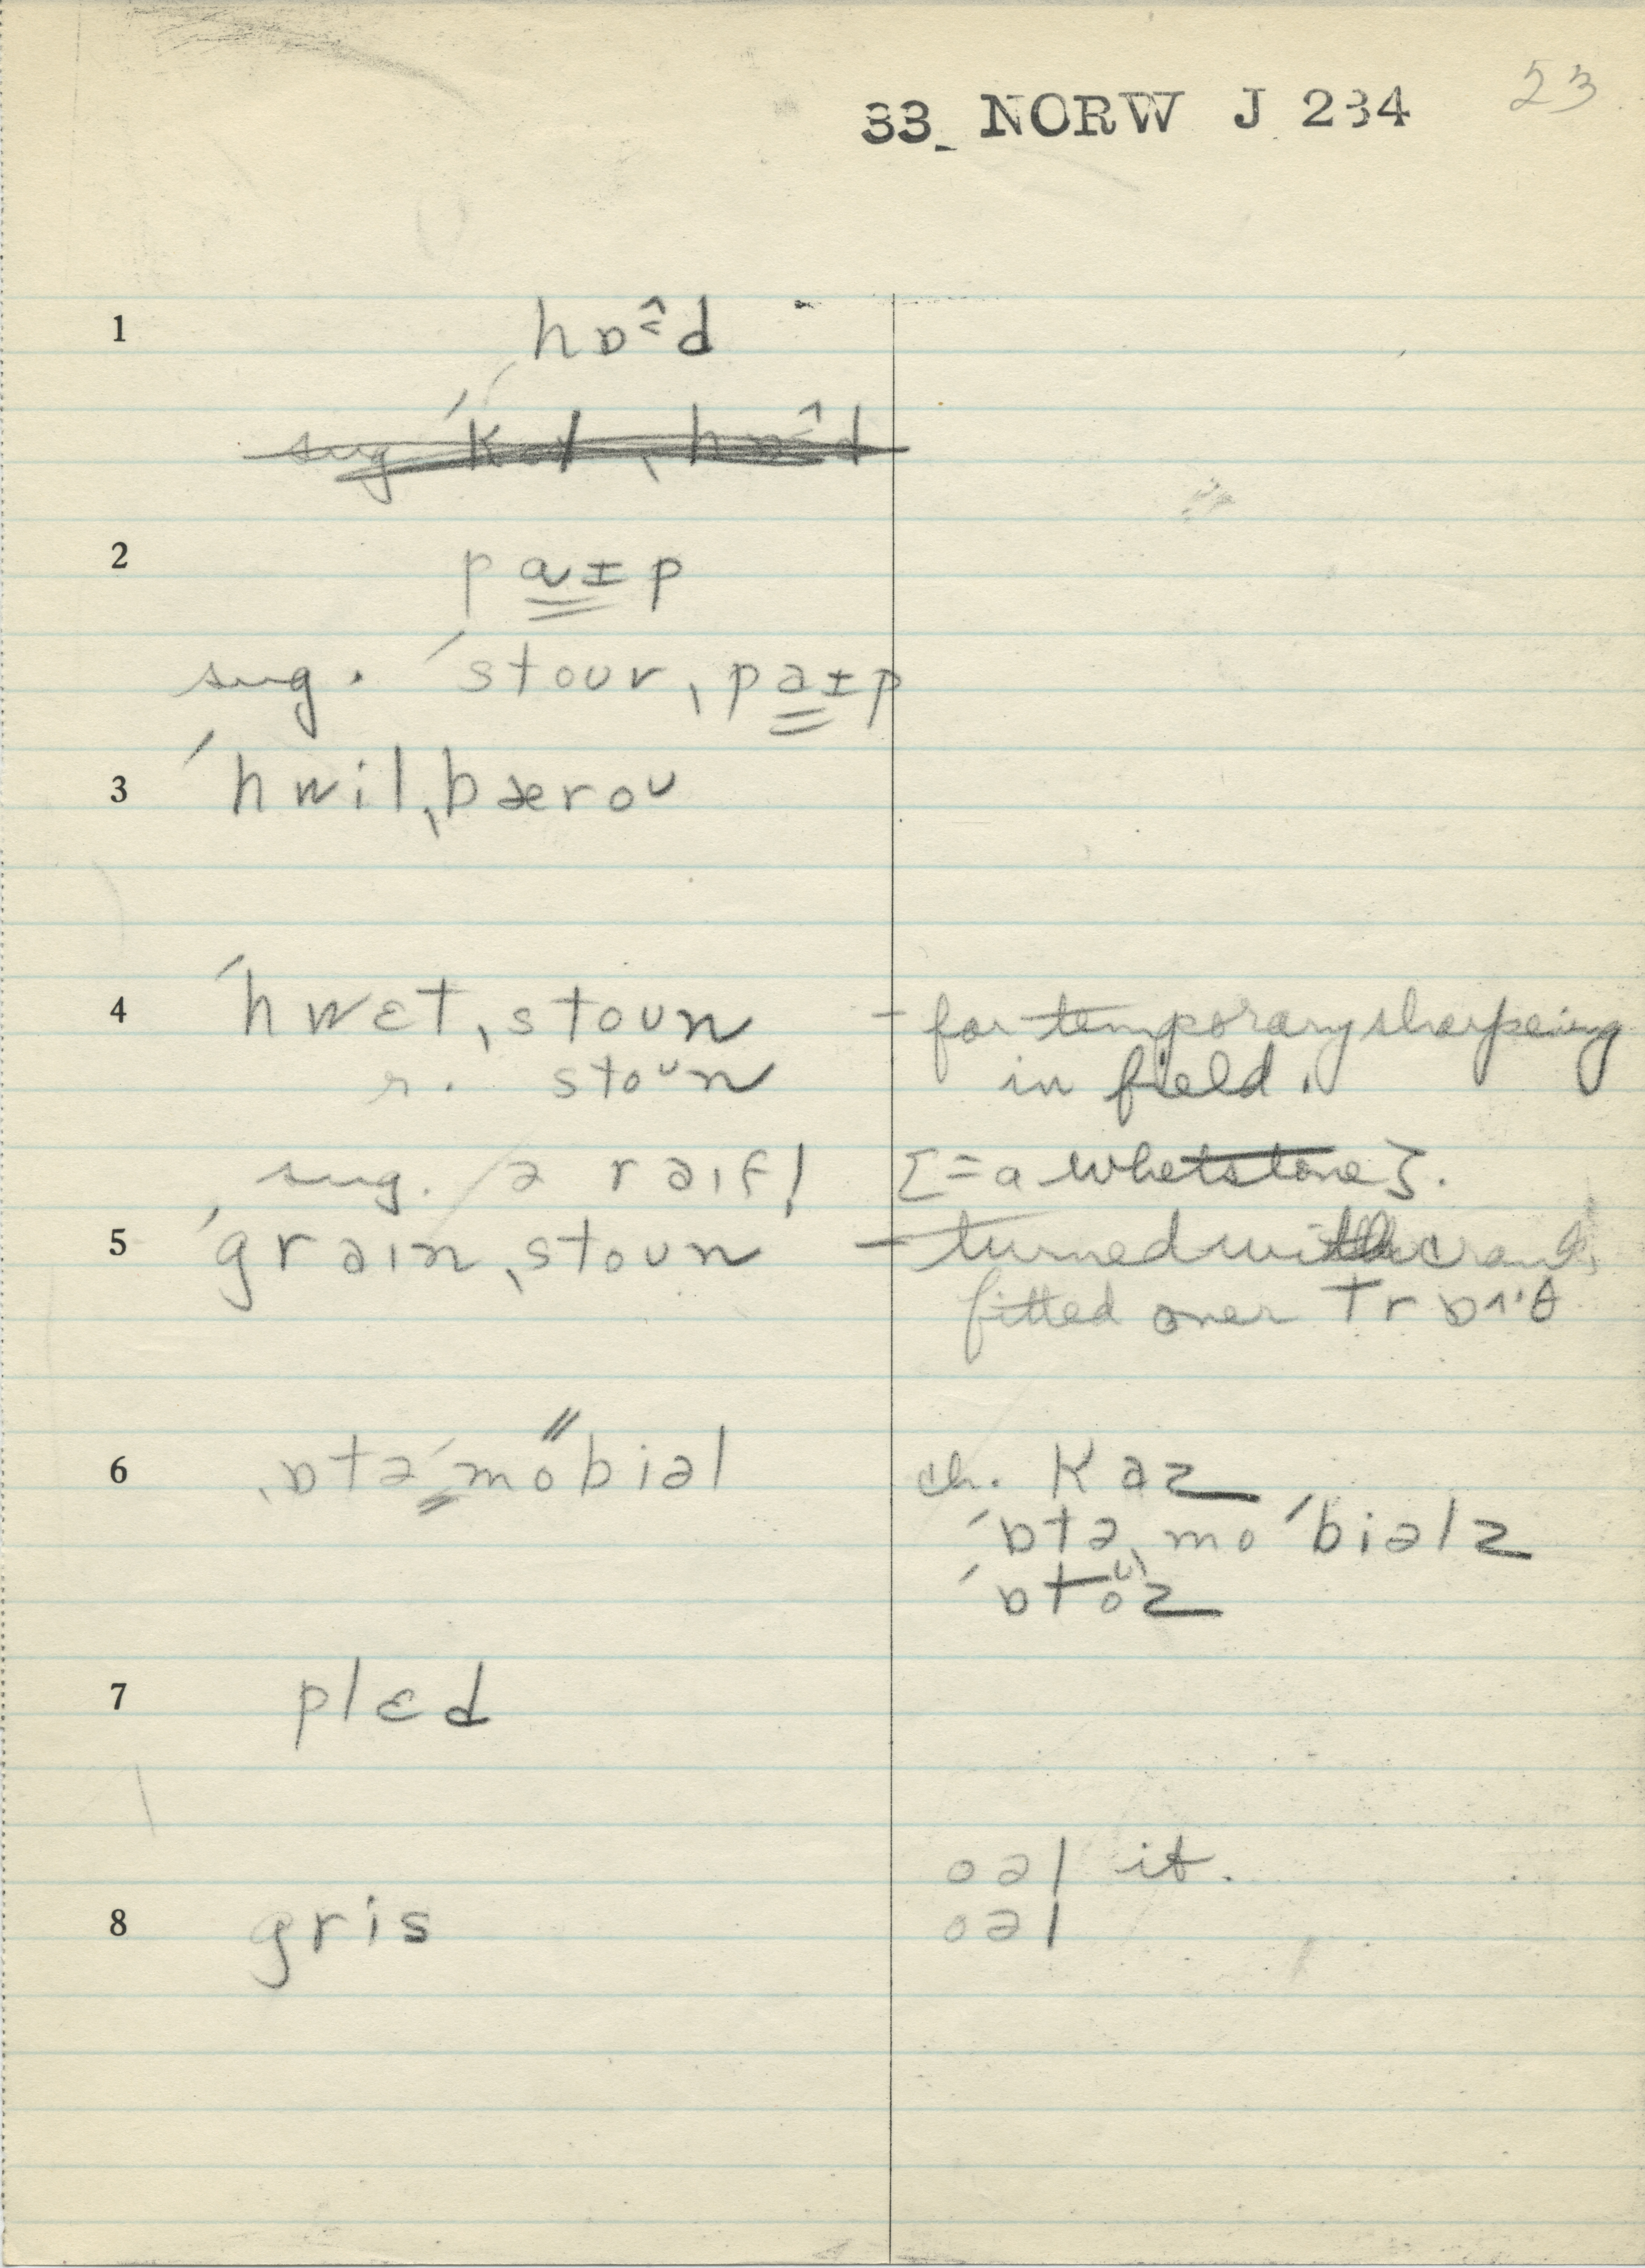 33 NORW J 234 23
1 hɒ˂̂d
sug ˈkol ˌhɒ˂̂d
2 pa̳ɪp
sug. ˈstour ˌpa̳ɪp
3 ˈhwilˌbærou
4 ˈhwɛtˌstoun – for temporary sharpening
r. stoᶷn in field.
sug. ə raif! [= a whetstone].
5 ˈgrainˌstoun – turned with crank,
fitted over trɒ^ˑθ
6 ˌɒtəˈmobiəl ch. kaz
ˈɒtəˌmoˈbiəlz
ˈɒtoᶷz
7 plɛd
oəl it.
8 gris oəl